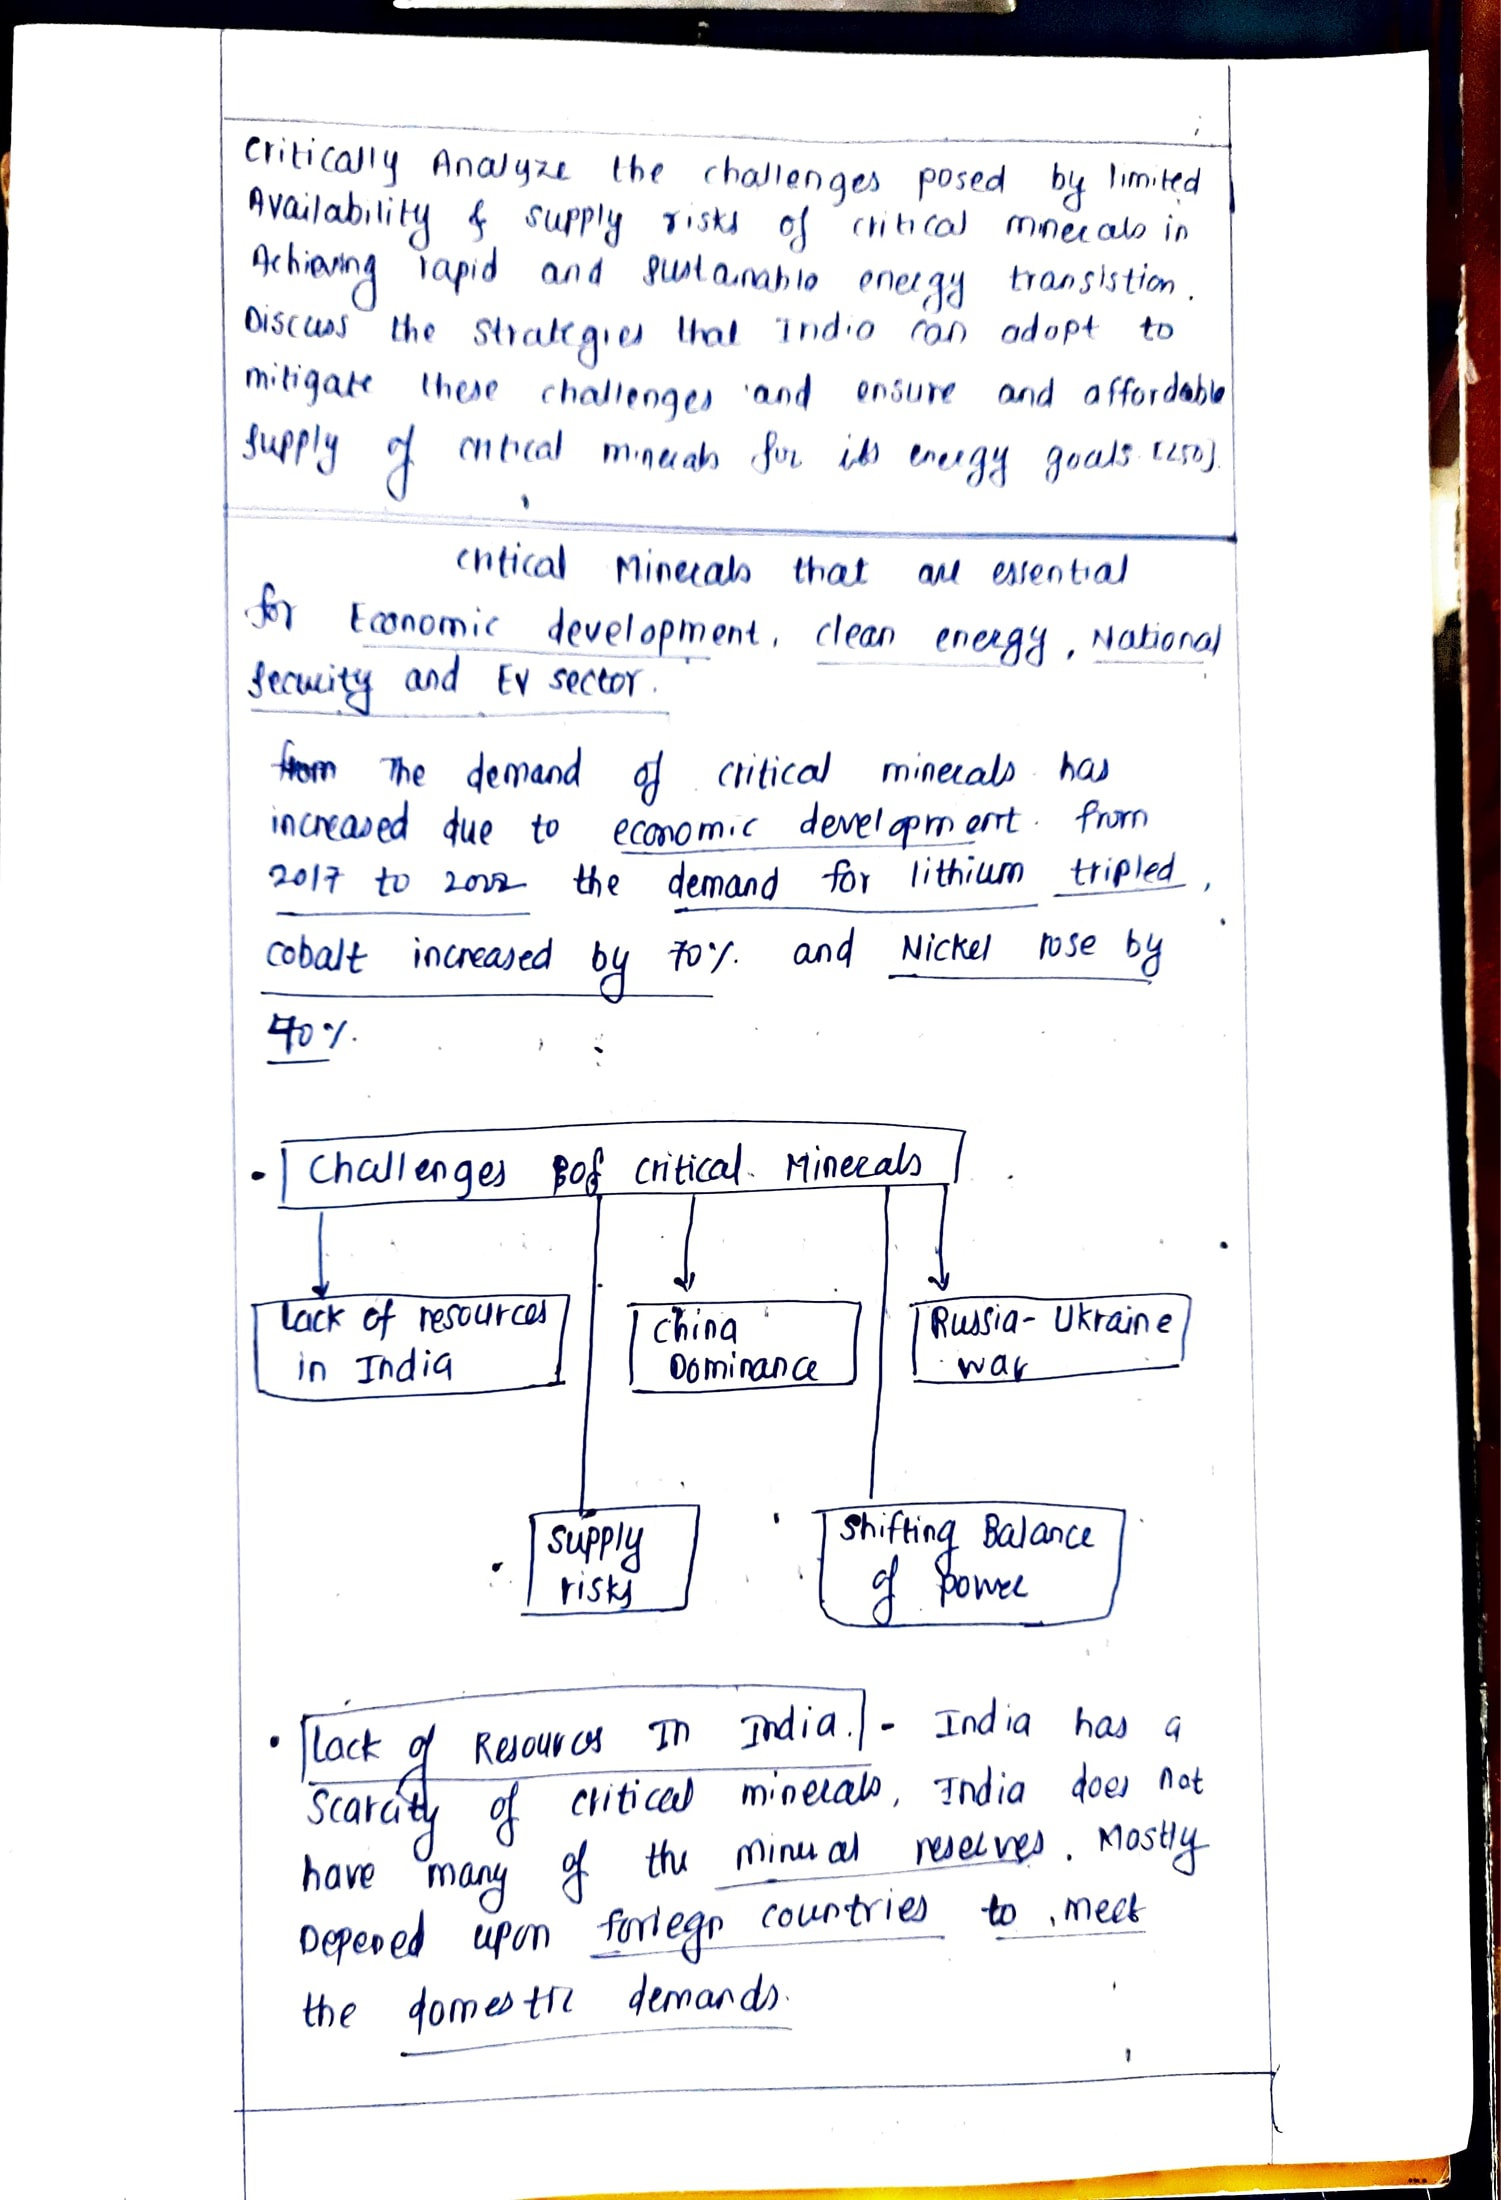 Critically Analyze the challenges posed by limited
Availability & supply risks of critical minerals in
Achieving rapid and sustainable energy transistion.
Discuss the strategies that India can adopt to
mitigate these challenges and ensure and affordable
supply of critical minerals for its energy goals [250].
critical Minerals that are essential
for Economic development, clean energy, National
security and EV sector.
from The demand of critical minerals has
increased due to economic development. from
2017 to 2022 the demand for lithium tripled,
cobalt increased by 70% and Nickel rose by
40%.
Challenges of critical Minerals
Lack of resources
in India
China
Dominance
Russia-Ukraine
war
supply
risks
Shifting Balance
of power
Lack of Resources In India. - India has a
Scarcity of critical minerals, India does not
have many of the mineral reserves. Mostly
Depened upon foriegn countries to meet
the domestic demands.